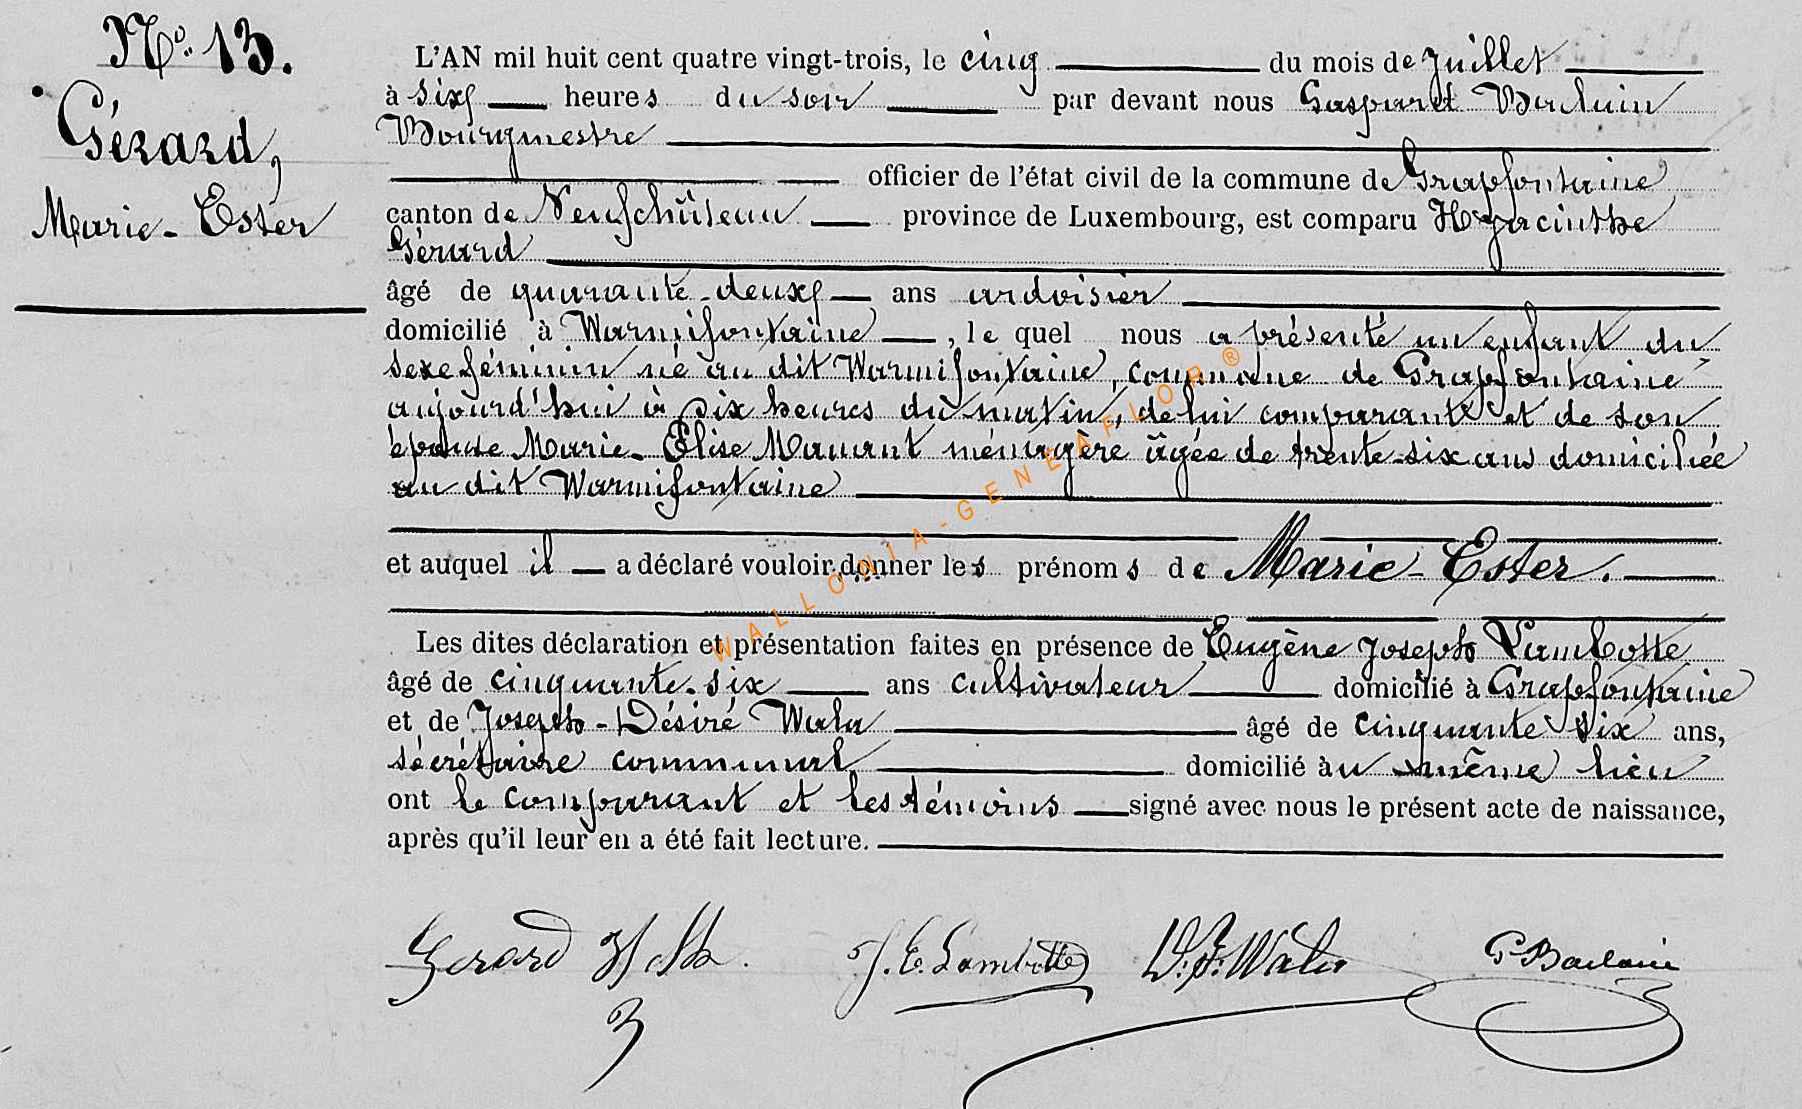 Nº 13.
Gérard,
Marie-Ester
L'AN mil huit cent quatre vingt-trois, le cinq du mois de Juillet
à six heures du soir par devant nous Gaspard
Bourgmestre
officier de l'état civil de la commune de Grapfontaine
canton de Neufchâteau province de Luxembourg, est comparu Hyacinthe
Gérard
âgé de quarante-deux ans ardoisier
domicilié à Warmifontaine, le quel nous a présenté un enfant du
sexe féminin né au dit Warmifontaine, commune de Grapfontaine
aujourd'hui à six heures du matin, de lui comparant et de son
épouse Marie-Elise Mamant ménagère âgée de trente-six ans domiciliée
au dit Warmifontaine
et auquel il a déclaré vouloir donner les prénoms de Marie-Ester.
Les dites déclaration et présentation faites en présence de Eugène Joseph Lambotte
âgé de cinquante-six ans cultivateur domicilié à Grapfontaine
et de Joseph-Désiré âgé de cinquante six ans,
sécrétaire communal domicilié au même lieu
ont le comparant et les témoins signé avec nous le présent acte de naissance,
après qu'il leur en a été fait lecture.
Gerard J. E. Lambotte
WALLONIA-GENEAFLOR®